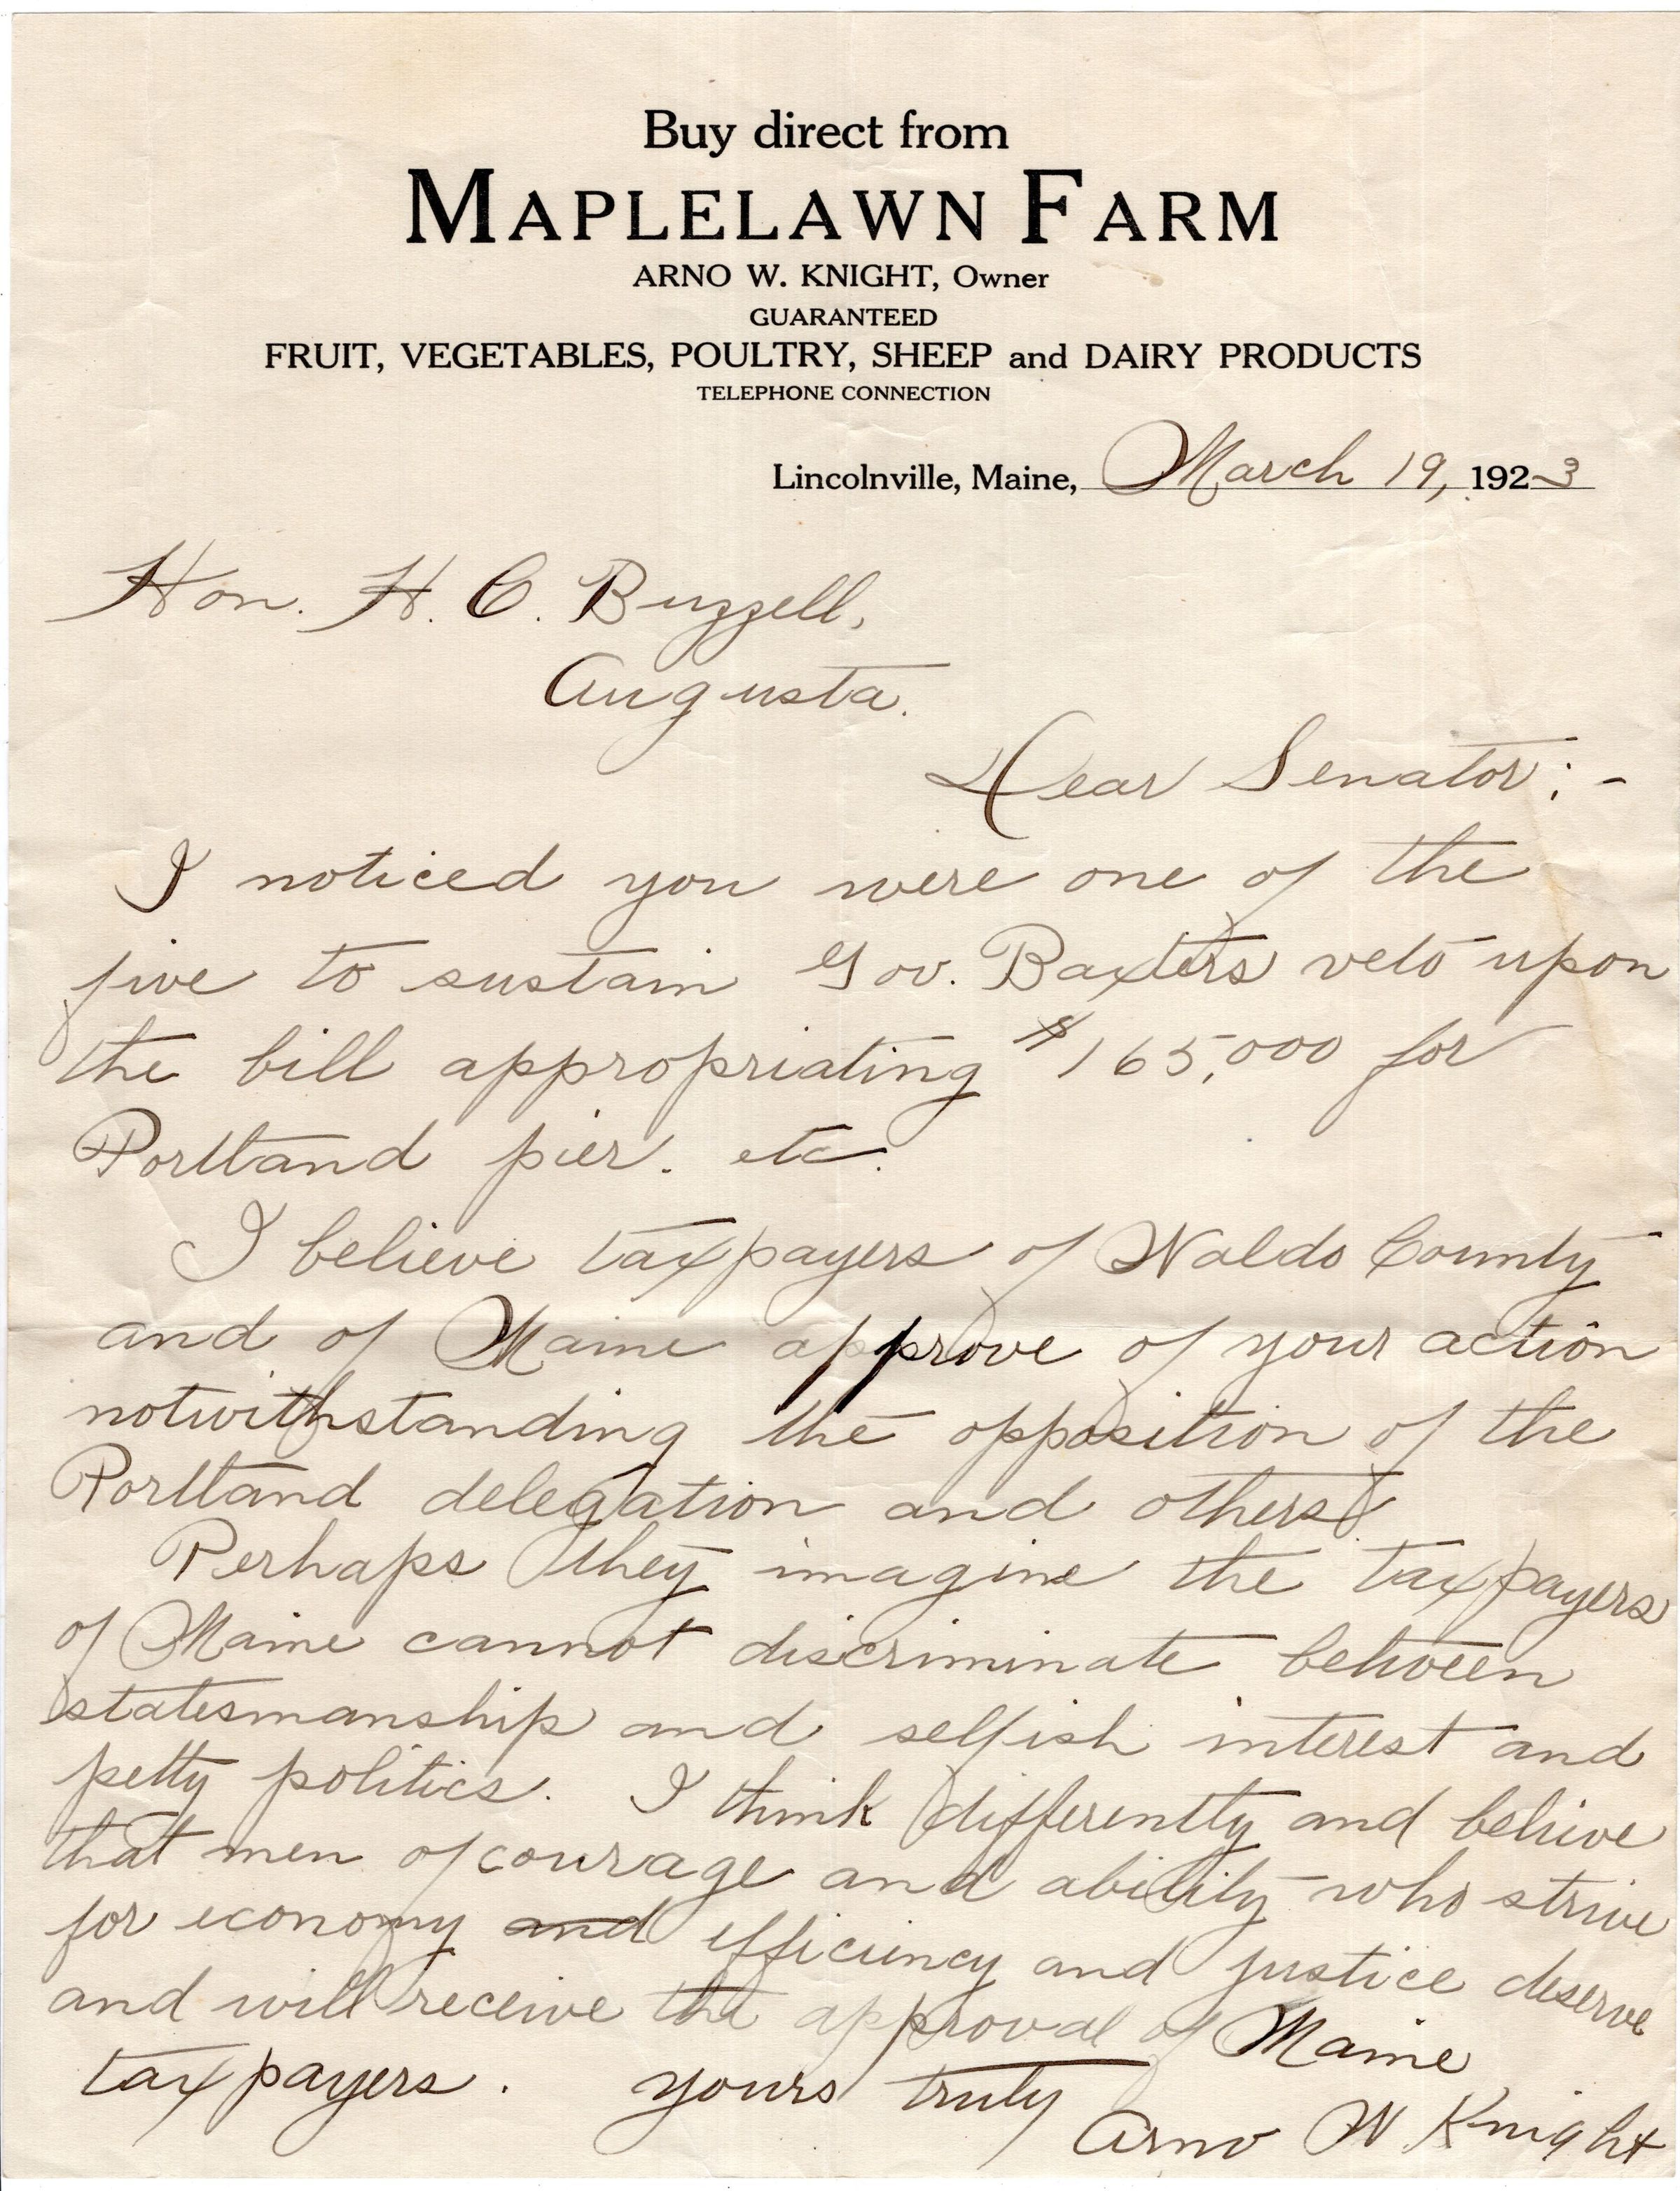 Buy direct from
MAPLELAWN FARM
ARNO W. KNIGHT, Owner
GUARANTEED
FRUIT, VEGETABLES, POULTRY, SHEEP and DAIRY PRODUCTS
TELEPHONE CONNECTION
Lincolnville, Maine, March 19, 1923
Hon. H. C. Buzzell,
Augusta.
Dear Senator;-
I noticed you were one of the
five to sustain Gov. Baxters veto upon
the bill appropriating $165,000 for
Portland pier. etc.
I believe taxpayers of Waldo County
and of Maine approve of your action
notwithstanding the opposition of the
Portland delegation and others.
Perhaps they imagine the taxpayers
of Maine cannot discriminate between
statesmanship and selfish interest and
petty politics. I think differently and believe
that men of courage and ability who strive
for economy and efficiency and justice deserve
and will receive the approval of Maine
taxpayers. yours truly
Arno W Knight